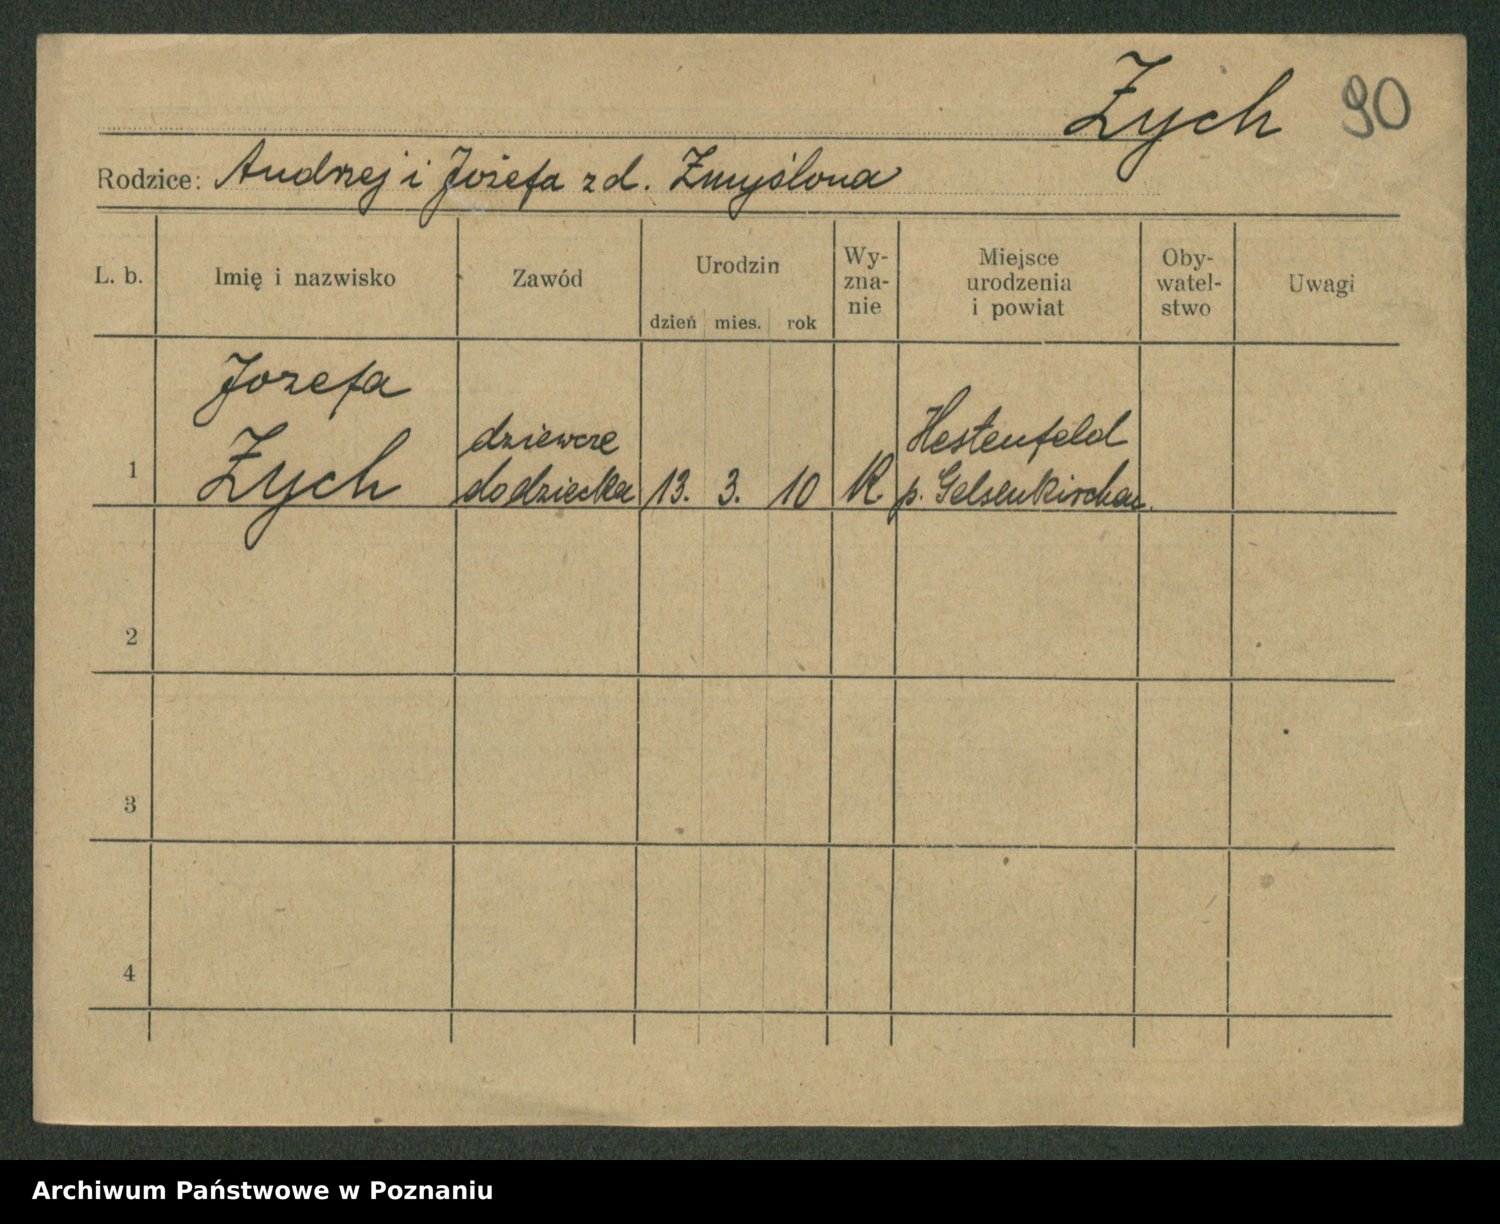 Zych 90
Rodzice: Andrzej i Józefa z d. Zmyślona
L. b. Imię i nazwisko Zawód Urodzin dzień mies. rok Wy-zna-nie Miejsce urodzenia i powiat Oby-watel-stwo Uwagi
Jozefa
Zych
dziewcze
do dziecka
1 13. 3. 10 K.
Hestenfeld
p. Gelsenkirchen.
2
3
4
Archiwum Państwowe w Poznaniu